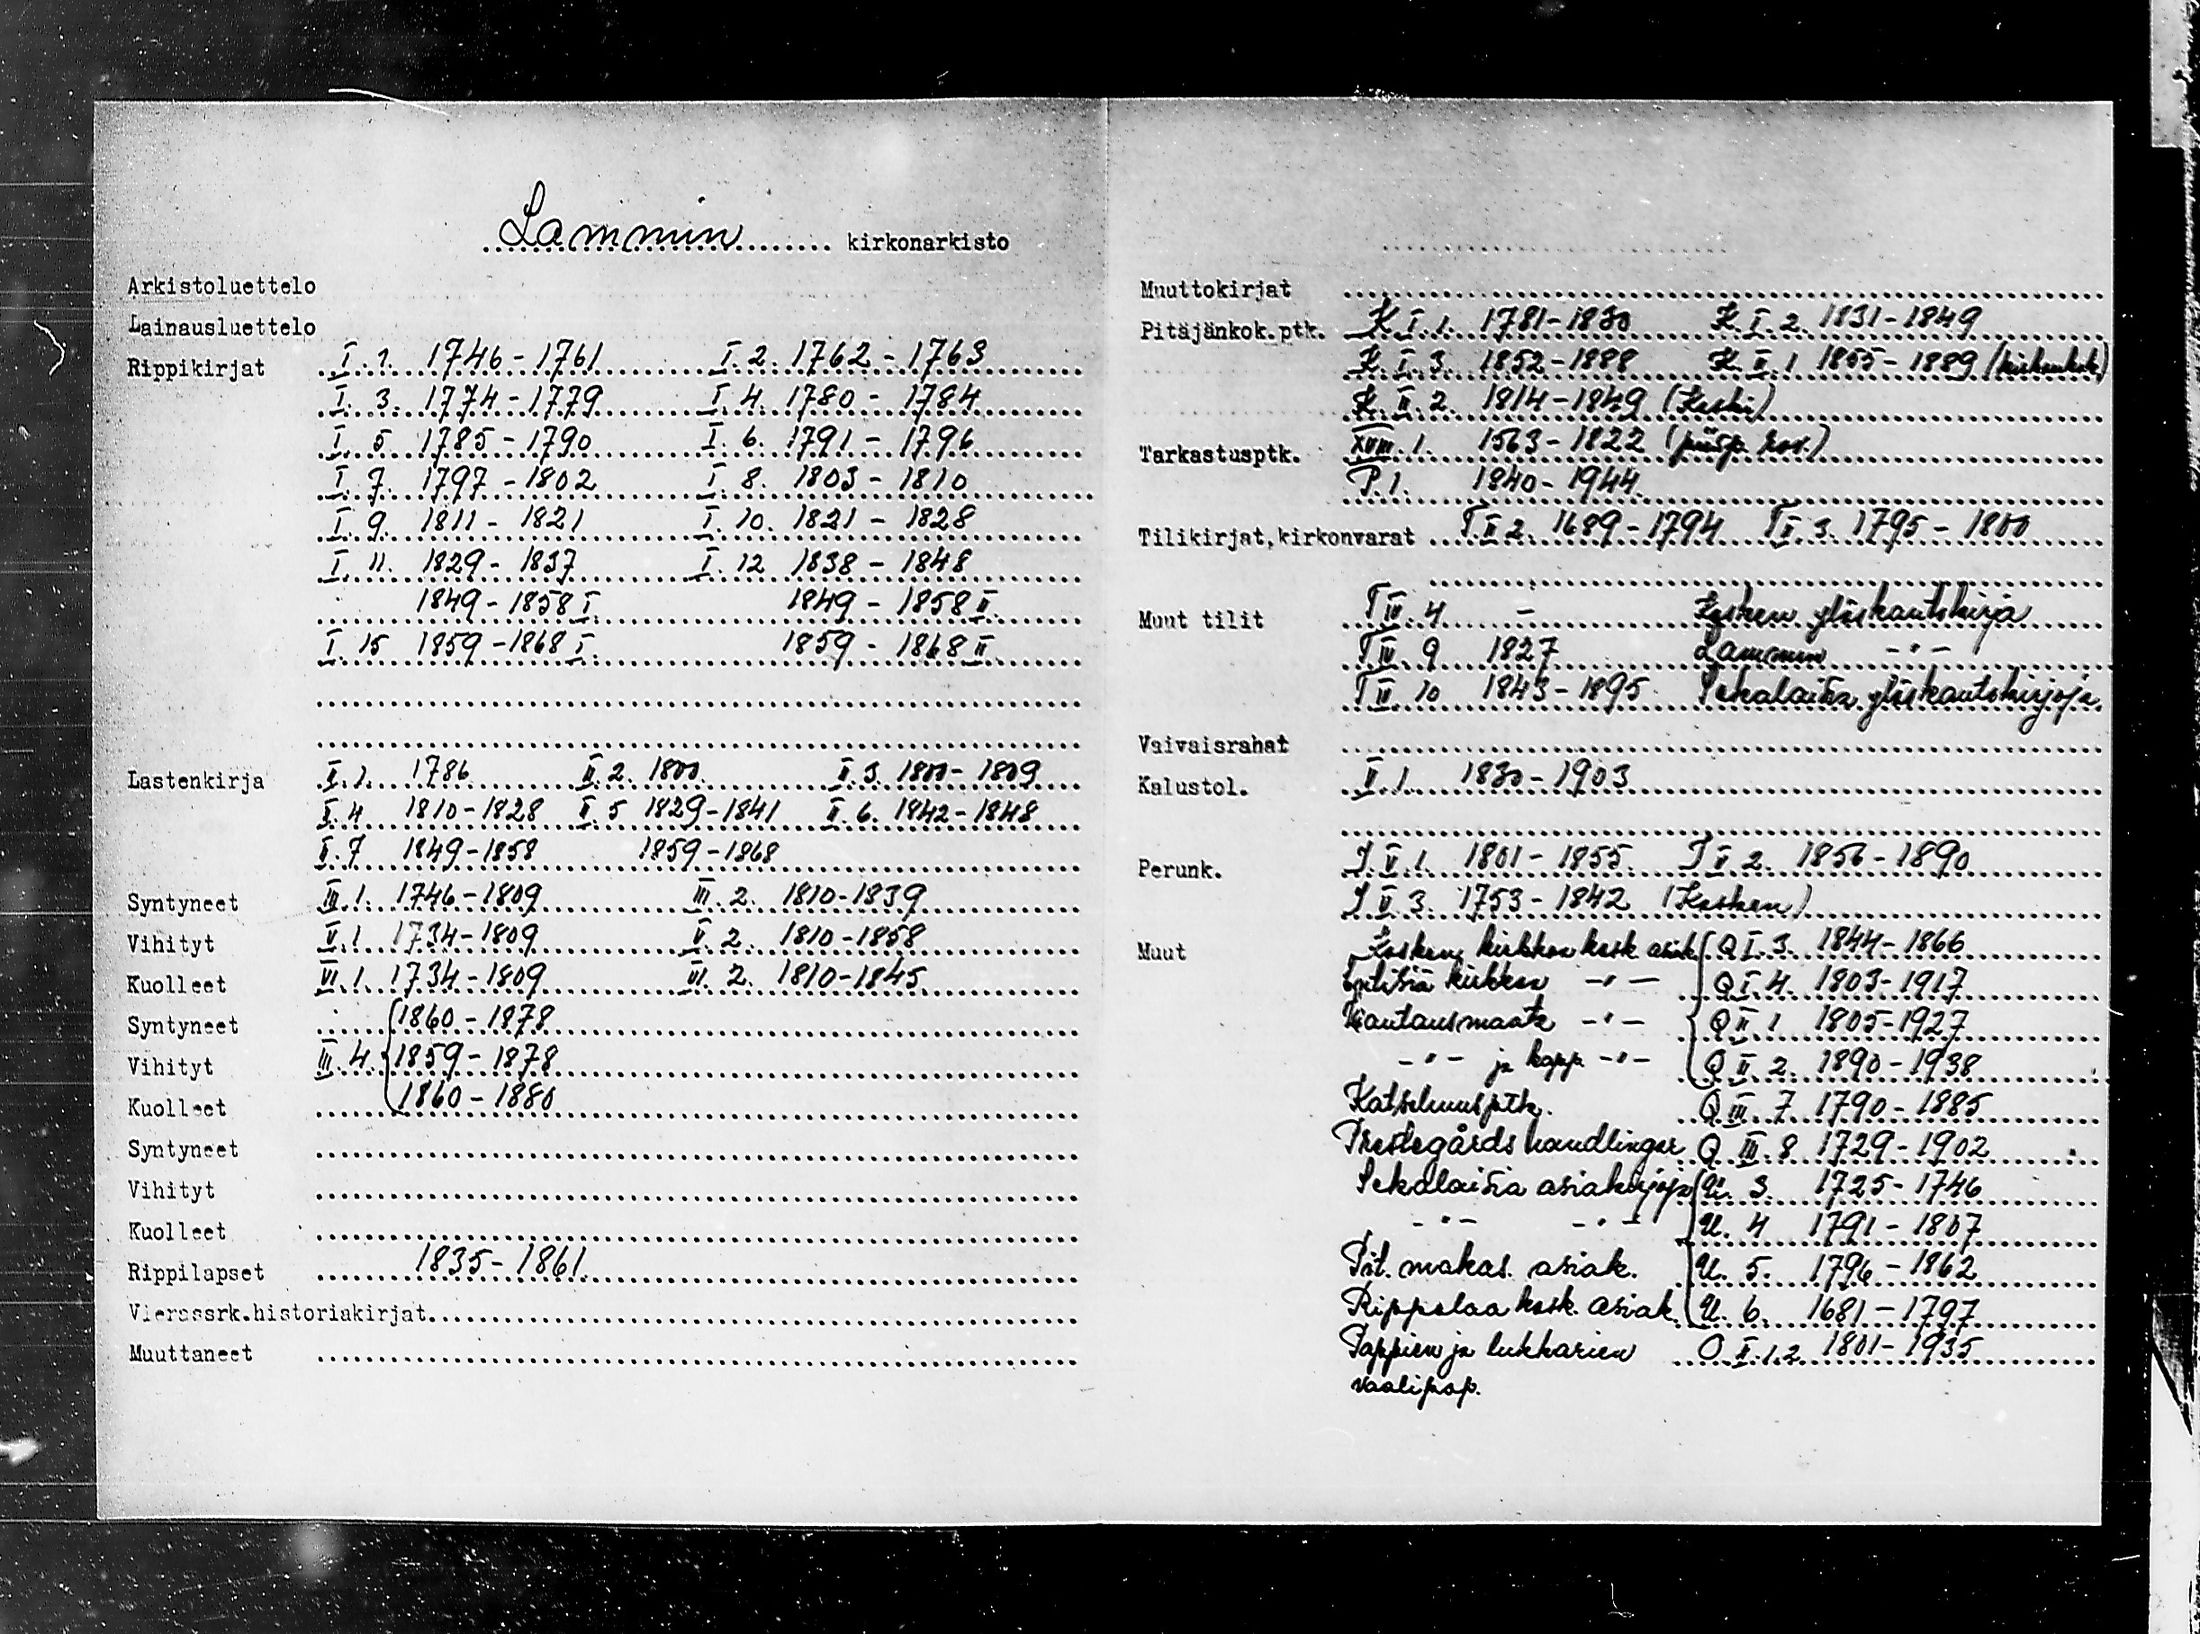 Lammin kirkonarkisto
Arkistoluettelo
Lainausluettelo
Rippikirjat I. 1. 1746-1761 I. 2. 1762-1763
I. 3. 1774-1779 I. 4. 1780-1784
I. 5 1785-1790 I. 6. 1791-1796
I. 7. 1797-1802 I. 8. 1803-1810
I. 9. 1811-1821 I. 10. 1821-1828
I. 11. 1829-1837 I. 12 1838-1848
1849-1858 I. 1849-1858 II.
I. 15 1859-1868 I. 1859-1868 II
Lastenkirja II. 1. 1786 II. 2. 1800. II. 3. 1800-1809
II. 4 1810-1828 II. 5 1829-1841 II. 6. 1842-1848
II. 7 1849-1858 1859-1868
Syntyneet III. 1. 1746-1809 III. 2. 1810-1839
Vihityt V. 1 1734-1809 V. 2. 1810-1858
Kuolleet VI. 1. 1734-1809 VI. 2. 1810-1845
Syntyneet 1860-1878
Vihityt III. 4. 1859-1878
Kuolleet 1860-1880
Syntyneet
Vihityt
Kuolleet
Rippilapset 1835-1861
Vierassrk.historiakirjat
Muuttaneet
Muuttokirjat
Pitäjänkok.ptk. K. I. 1. 1781-1830 K. I. 2. 1831-1849
K. I. 3. 1852-1888 K. II. 1 1855-1889 (kirkonkok)
K. II. 2. 1814-1849 (Koski)
Tarkastusptk. XVIII. 1. 1563-1822 (piisp. )
P. 1. 1840-1944
Tilikirjat,kirkonvarat T. II 2. 1689-1794 T II. 3. 1795-1800
Muut tilit T III. 4 - Kosken ylöskantokirja
T IV. 9 1827 Lammin -"-
10 1843-1895 Sekalaisia ylöskantokirjoja.
Vaivaisrahat
Kalustol. II. 1. 1830-1903
Perunk. J. II. 1. 1801-1855. J II 2. 1856-1890
J II. 3. 1753-1842 (Kosken)
Muut Kosken kirkkoa kosk. asiak. Q I. 3. 1844-1866
Entisiä kirkkoa -"- Q I. 4. 1803-1917
Hautausmaata -"- Q II. 1 1805-1927
-"- ja kapp. -"- Q II. 2. 1890-1938
Katselmusptk. Q III. 7 1790-1885
Prestegårds handlingar Q III. 8 1729-1902
Sekalaisia asiakirjoja U. 3. 1725-1746
-"- -"- U. 4 1791-1807
Pit. makas. asiak. U. 5. 1796-1862
Rippolaa kosk. asiak. U. 6. 1681-1797
Pappien ja lukkarien O II. 1.2 1801-1935
vaalipap.